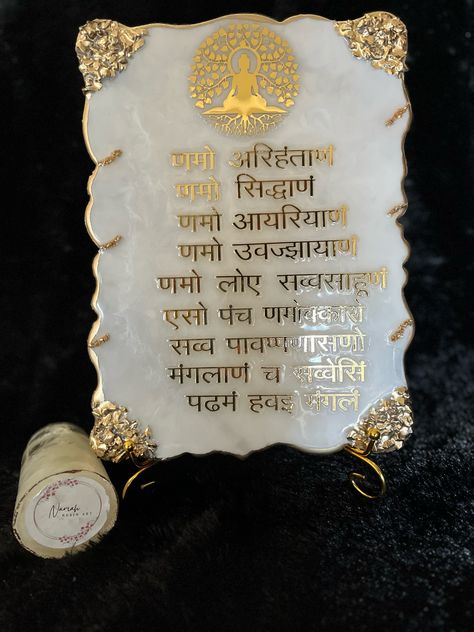 णमो अरिहंताणं
णमो सिद्धाणं
णमो आयरियाणं
णमो उवज्झायाणं
णमो लोए सव्वसाहूणं
एसो पंच णमोक्कारो
सव्व पावप्पणासणो
मंगलाणं च सव्वेसिं
पढमं हवइ मंगलं
RESIN ART